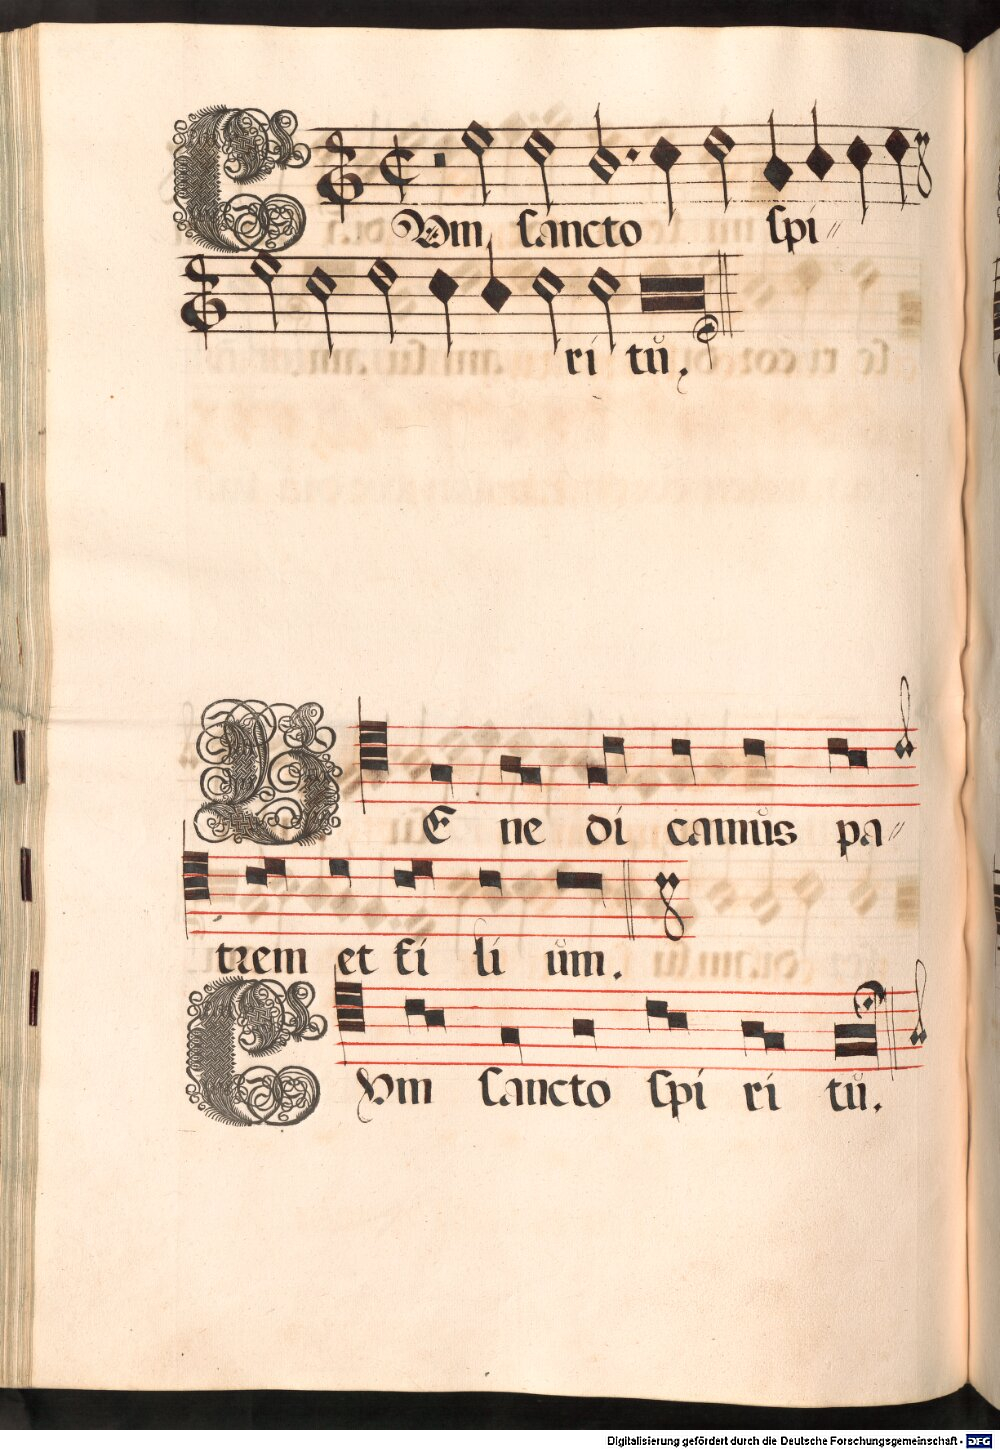 CUm sancto spi
ri tu.
BE ne di camus pa
trem et fi li um.
CUm sancto spi ri tu.
Digitalisierung gefördert durch die Deutsche Forschungsgemeinschaft - DFG